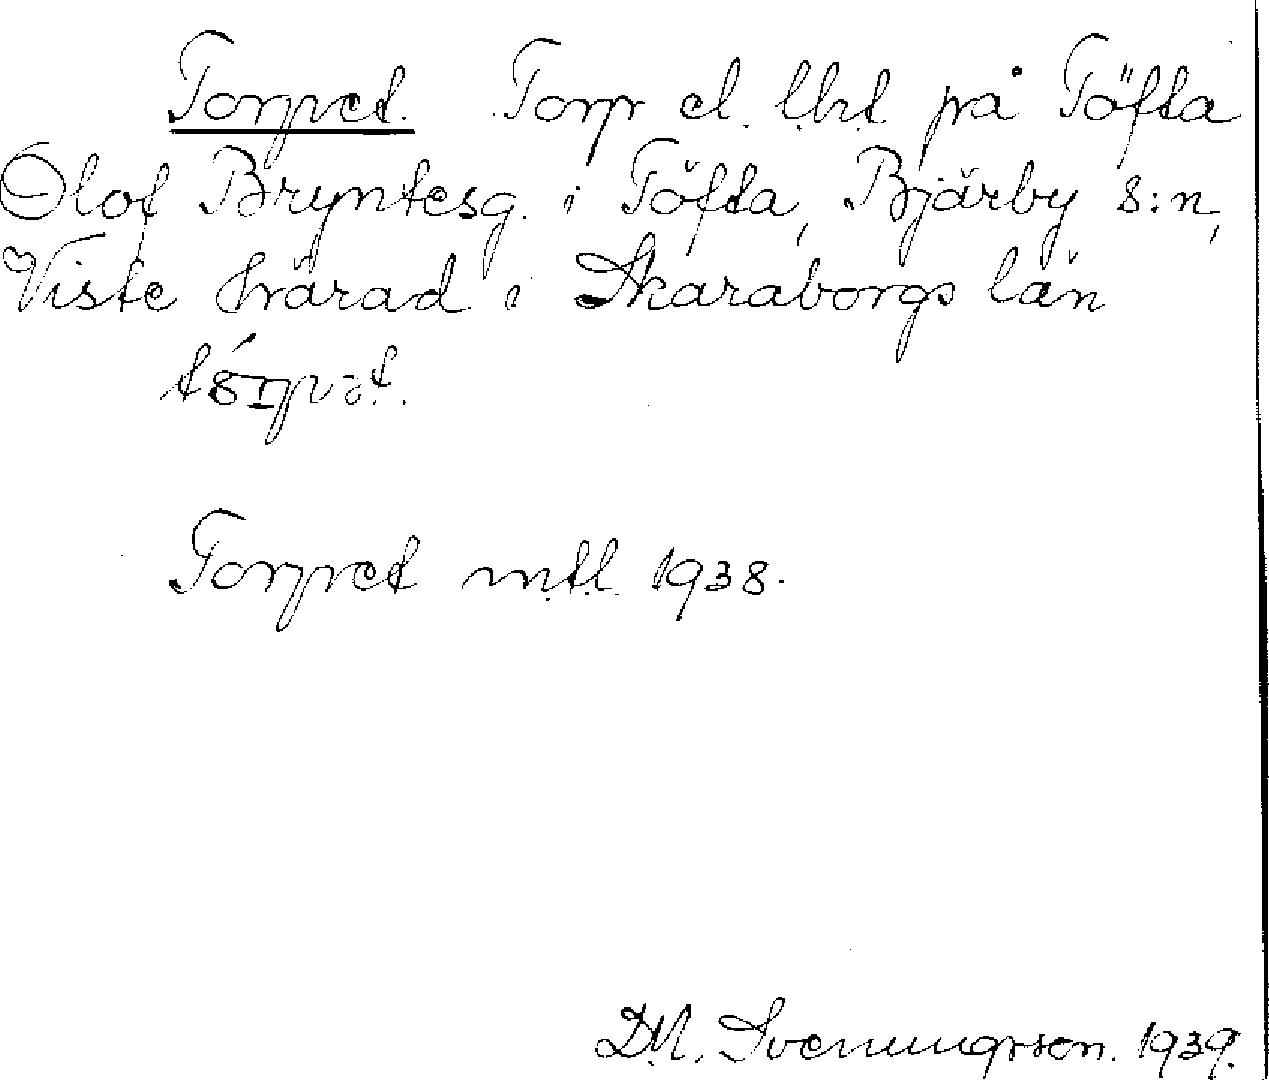 Torpet. Torp el. lht på Töfta
Olof Bryntesg. i Töfta, Bjärby s:n,
Viste härad i Skaraborgs län

Torpet mtl. 1938.
D.A. Svenungsson. 1939.